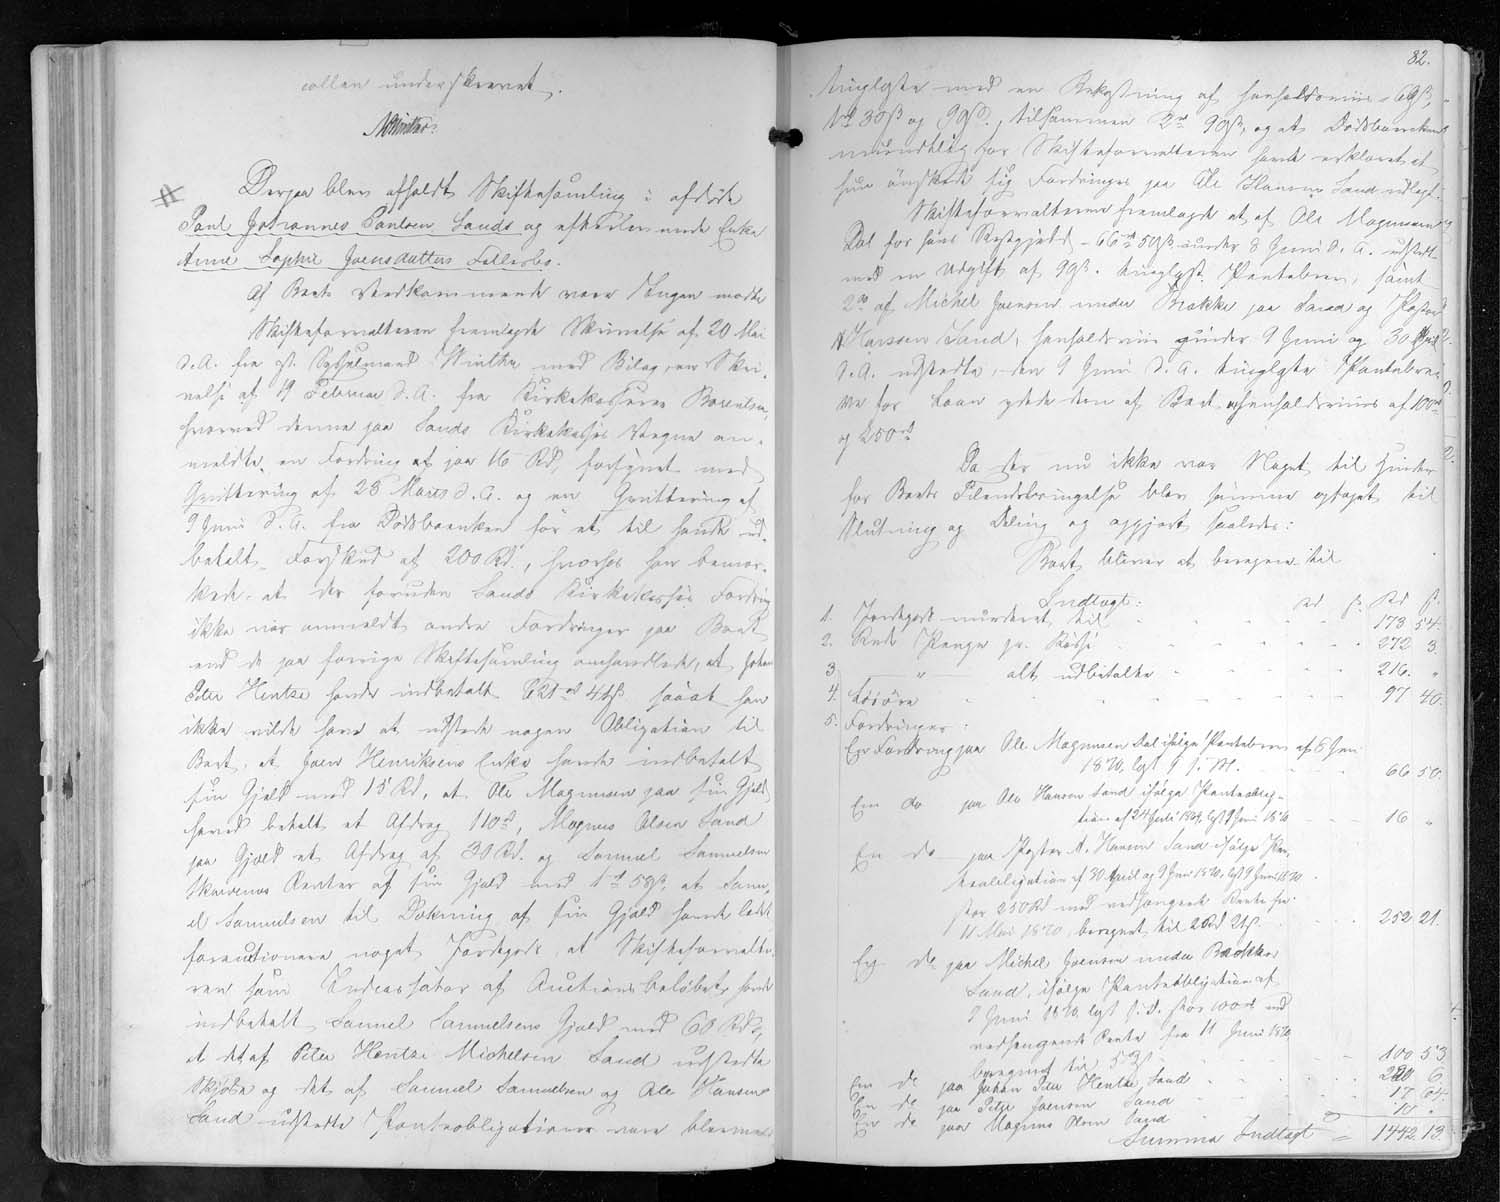 collen underskrevet.
Winther
Derpaa blev afholdt Skiftesamling i afdøde
Poul Johannes Poulsen Sands og efterlevende Enke
Anne Sophie Joensdatters Fællesbo.
Af Boets Vedkommende var Ingen mødte
Skifteforvalteren fremlagde Skrivelse af 20 Mai
d. A. fra Sysselmand Winther med Bilag, en Skri-
velse af 19 Februar d. A. fra Kirkekasserer Berentsen,
hvorved denne paa Sands Kirkekasses Vegne an-
meldte en Fordring af paa 16 Rd, forsynet med
Qvittering af 28 Marts d. A. og en Qvittering af
9 Juni d. A. fra Dødsboenken for et til hende ud-
betalt Forskud af 200 Rd., hvorhos han bemær-
kede, at der foruden Sands Kirkekasses Fordring
ikke var anmeldt andre Fordringer paa Boet
end de paa forrige Skiftesamling omhandlede, at Johan
Peter Hentze havde indbetalt saaat han
ikke vilde have at udstede nogen Obligation til
Boet, at Joen Henriksens Enke havde indbetalt
sin Gjæld med 15 Rd, at Ole Magnussen paa sin Gjæld
havde betalt et Afdrag 110 rd, Magnus Olsen Sand
paa Gjæld et Afdrag af 30 Rd. og Samuel Samuelsen
Skarvenes Renter af sin Gjæld med 1 rd 58 ß, at Samu-
el Samuelsen til Dækning af sin Gjæld havde ladet
forauctionere noget Jordegods, at Skifteforvalte-
ren som Incassator af Auctionsbeløbet havde
indbetalt Samuel Samuelsens Gjæld med 60 Rd,
at det af Peter Hentze Michelsen Sand udstedte
Skjøde og det af Samuel Samuelsen og Ole Hansen
Sand udstedte Panteobligationer vare blevne
82.
tinglyste med en Bekostning af henholdsviis 69 ß,
1 rd 30 ß og 90 ß, tilsammen 2 rd 90 ß, og at Dødsboenken
mundtlig for Skifteforvalteren havde erklæret at
hun ønskede sig Fordringer paa Ole Hansen Sand udlagt.
Skifteforvalteren fremlagde et af Ole Magnussen
Dal for hans Restgjæld 66 rd 50 ß under 8 Juni d. A. udstedt
med en Udgift af 90 ß tinglyst Pantebrev, samt
2 de af Michel Joensen under Brække paa Sand og Poster
H Hanssen Sand, henholdsviis under 9 Juni og 30 April
d. A. udstedte, den 9 Juni d. A. tinglyste Pantebre-
ve for Laan ydede dem af Boet henholdsviis af 100 rd
og 250 rd
Da der nu ikke var Noget til Hinder
for Boets Tilendebringelse blev samme optaget til
Slutning og Deling og opgjort saaledes:
Boet bliver at beregne til
Indtægt: Rd ß. Rd ß.
1. Jordegods vurderet til 173 54.
2. Rede Penge pr. Kasse 272 3.
3. " alt udbetalte 216. "
4. Løsøre 97 40.
5. Fordringer:
En Fordring paa Ole Magnussen Dal ifølge Pantebrev af 8 Juni
1870, lyst 9 s. M. 66 50.
En do paa Ole Hansen Sand ifølge Panteobliga-
tion af 24 Juli 1869, lyst 9 Juni 1870 16 "
En do paa Poster H. Hansen Sand ifølge Pan-
teobligation af 30 April og 9 Juni 1870, lyst 9 Juni 1870
stor 250 Rd med vedhængende Rente fra
11 Mai 1870, beregnet til 2 Rd 21 ß. 252 21.
En do paa Michel Joensen under Brække
Sand, ifølge Panteobligation af
9 Juni 1870, lyst s. D. stor 100 rd med
vedhængende Rente fra 11 Juni 1870,
beregnet til 53 ß 100 53
En do paa Johan Peter Hentze Sand 220 6.
En do paa Peter Joensen Sand 17 64.
En do paa Magnus Olsen Sand
Summa Indtægt = 1442 13.